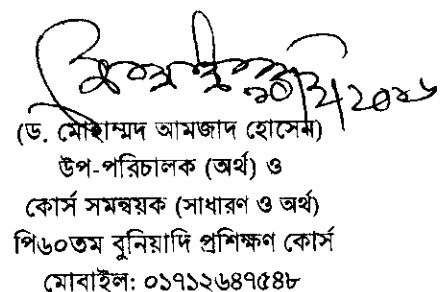 (ড. মোহাম্মদ আমজাদ হোসেন)
উপ-পরিচালক (অর্থ) ও
কোর্স সমন্বয়ক (সাধারণ ও অর্থ)
পি৬০তম বুনিয়াদি প্রশিক্ষণ কোর্স
মোবাইল: ০১৭১২৬৪৭৫৪৮